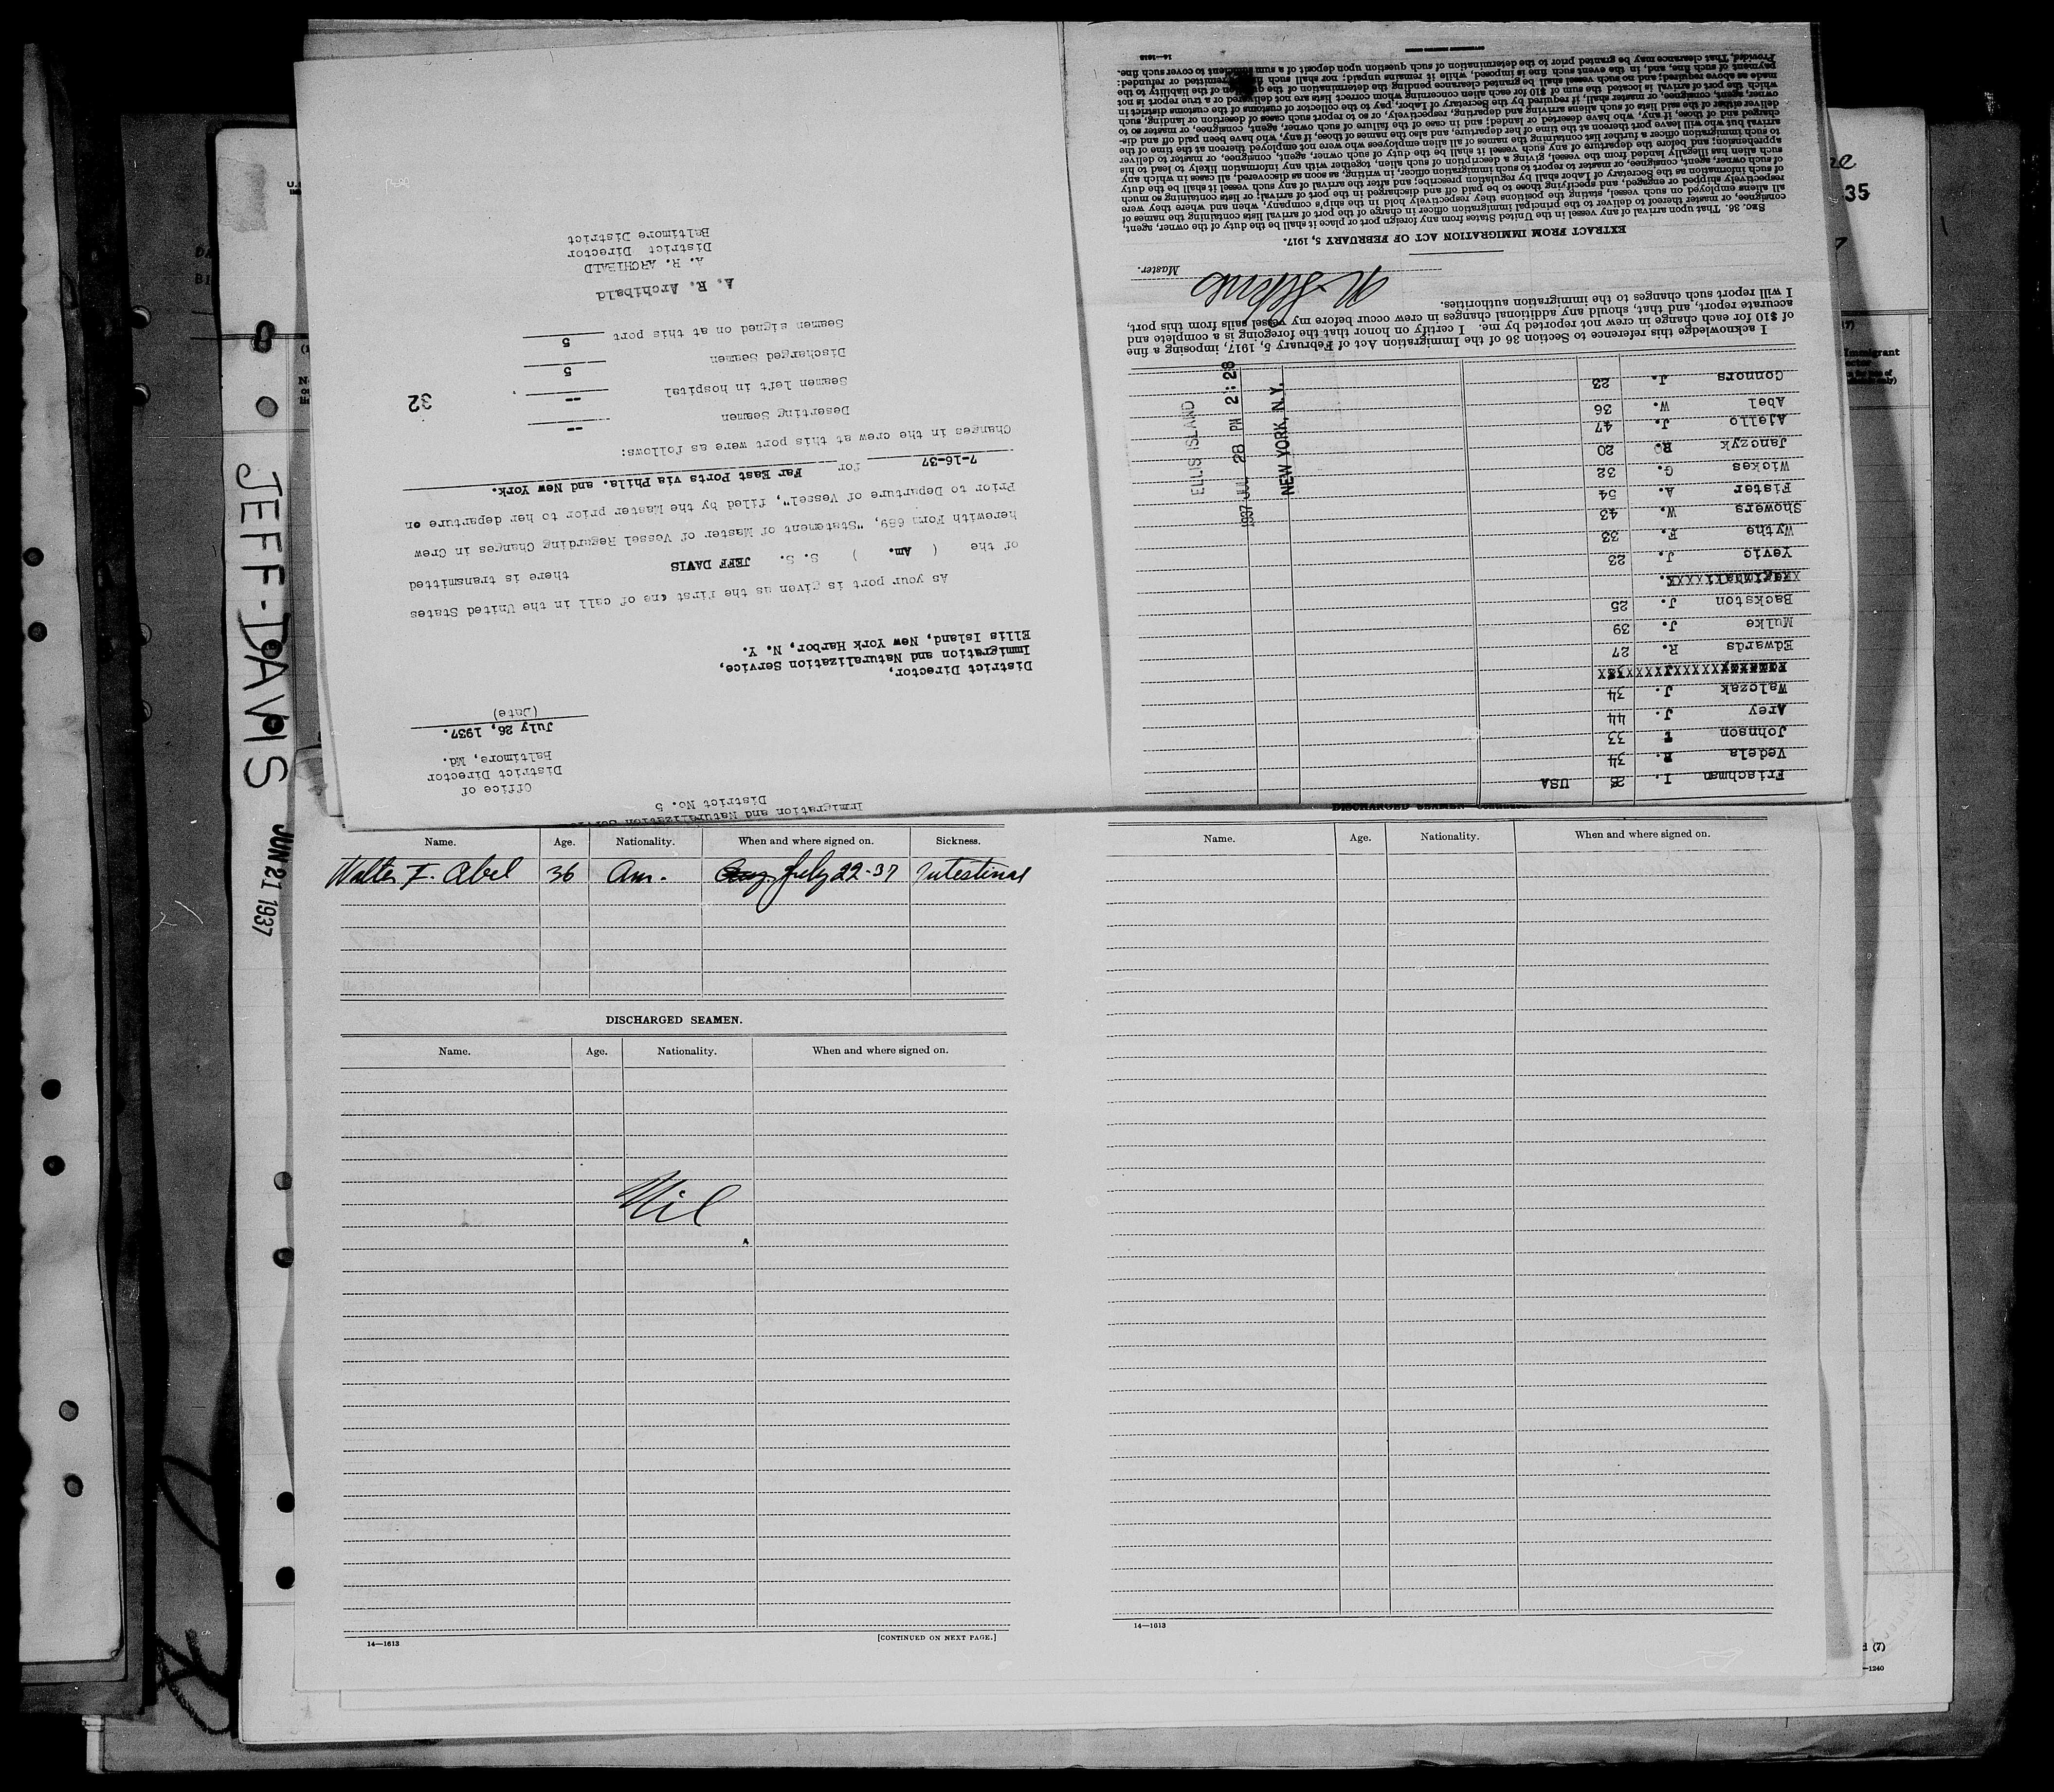 Immigration and Naturalization Service
District No. 5
Office of
District Director
Baltimore, Md.
July 26, 1937.
(Date)
District Director,
Immigration and Naturalization Service,
Ellis Island, New York Harbor, N. Y.
As your port is given as the first one of call in the United States
of the ( Am. ) S. S. JEFF DAVIS there is transmitted
herewith Form 689, "Statement of Master of Vessel Regarding Changes in Crew
Prior to Departure of Vessel", filed by the Master prior to her departure on
7-16-37 for Far East Ports via Phila. and New York.
Changes in the crew at this port were as follows:
Deserting Seamen --
Seamen left in hospital --
Discharged Seamen 5
Seamen signed on at this port 5
32
A. R. Archibald
A. R. ARCHIBALD
District Director
Baltimore District
Frischman I. USA
Vedela 34
Johnson 33
Arey J. 44
Walczak J. 34
Edwards R. 27
Mulke J. 39
Backston J. 25
Yevic J. 23
Wythe F. 33
Showers W. 43
Fister A. 54
Wickes G. 32
Janczyk R. 20
Ajello J. 47
Abel W. 36
Connors J. 23
ELLIS ISLAND
1937 JUL 28 PM 2:28
NEW YORK, N.Y.
I acknowledge this reference to Section 36 of the Immigration Act of February 5, 1917, imposing a fine
of $10 for each change in crew not reported by me. I certify on honor that the foregoing is a complete and
accurate report, and that, should any additional changes in crew occur before my vessel sails from this port,
I will report such changes to the immigration authorities.
Master.
EXTRACT FROM IMMIGRATION ACT OF FEBRUARY 5, 1917.
SEC. 36. That upon arrival of any vessel in the United States from any foreign port or place it shall be the duty of the owner, agent,
consignee, or master thereof to deliver to the principal immigration officer in charge of the port of arrival lists containing the names of
all aliens employed on such vessel, stating the positions they respectively hold in the ship's company, when and where they were
respectively shipped or engaged, and specifying those to be paid off and discharged in the port of arrival; or lists containing so much
of such information as the Secretary of Labor shall by regulation prescribe; and after the arrival of any such vessel it shall be the duty
of such owner, agent, consignee, or master to report to such immigration officer, in writing, as soon as discovered, all cases in which any
such alien has illegally landed from the vessel, giving a description of such alien, together with any information likely to lead to his
apprehension; and before the departure of any such vessel it shall be the duty of such owner, agent, consignee, or master to deliver
to such immigration officer a further list containing the names of all alien employees who were not employed thereon at the time of the
arrival but who will leave port thereon at the time of her departure, and also the names of those, if any, who have been paid off and dis-
charged and of those, if any, who have deserted or landed; and in case of the failure of such owner, agent, consignee, or master so to
deliver either of the said lists of such aliens arriving and departing, respectively, or so to report such cases of desertion or landing, such
owner, agent, consignee, or master shall, if required by the Secretary of Labor, pay to the collector of customs of the customs district in
which the port of arrival is located the sum of $10 for each alien concerning whom correct lists are not delivered or a true report is not
made as above required; and no such vessel shall be granted clearance pending the determination of the question of the liability to the
payment of such fine, and, in the event such fine is imposed, while it remains unpaid; nor shall such fine be remitted or refunded:
Provided, That clearance may be granted prior to the determination of such question upon deposit of a sum sufficient to cover such fine.
JEFF-DAVIS
JUN 21 1937
35
Name. Age. Nationality. When and where signed on. Sickness.
Walter F. Abel 36 Am. July 22-37 Intestinal
DISCHARGED SEAMEN.
Name. Age. Nationality. When and where signed on.
Nil
14—1613 [CONTINUED ON NEXT PAGE.]
Name. Age. Nationality. When and where signed on.
14—1613
(7)
—1240